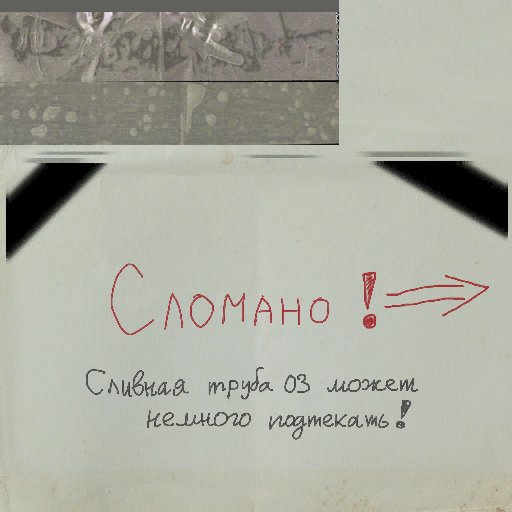 Сломано!
Сливная труба 03 может
немного подтекать!